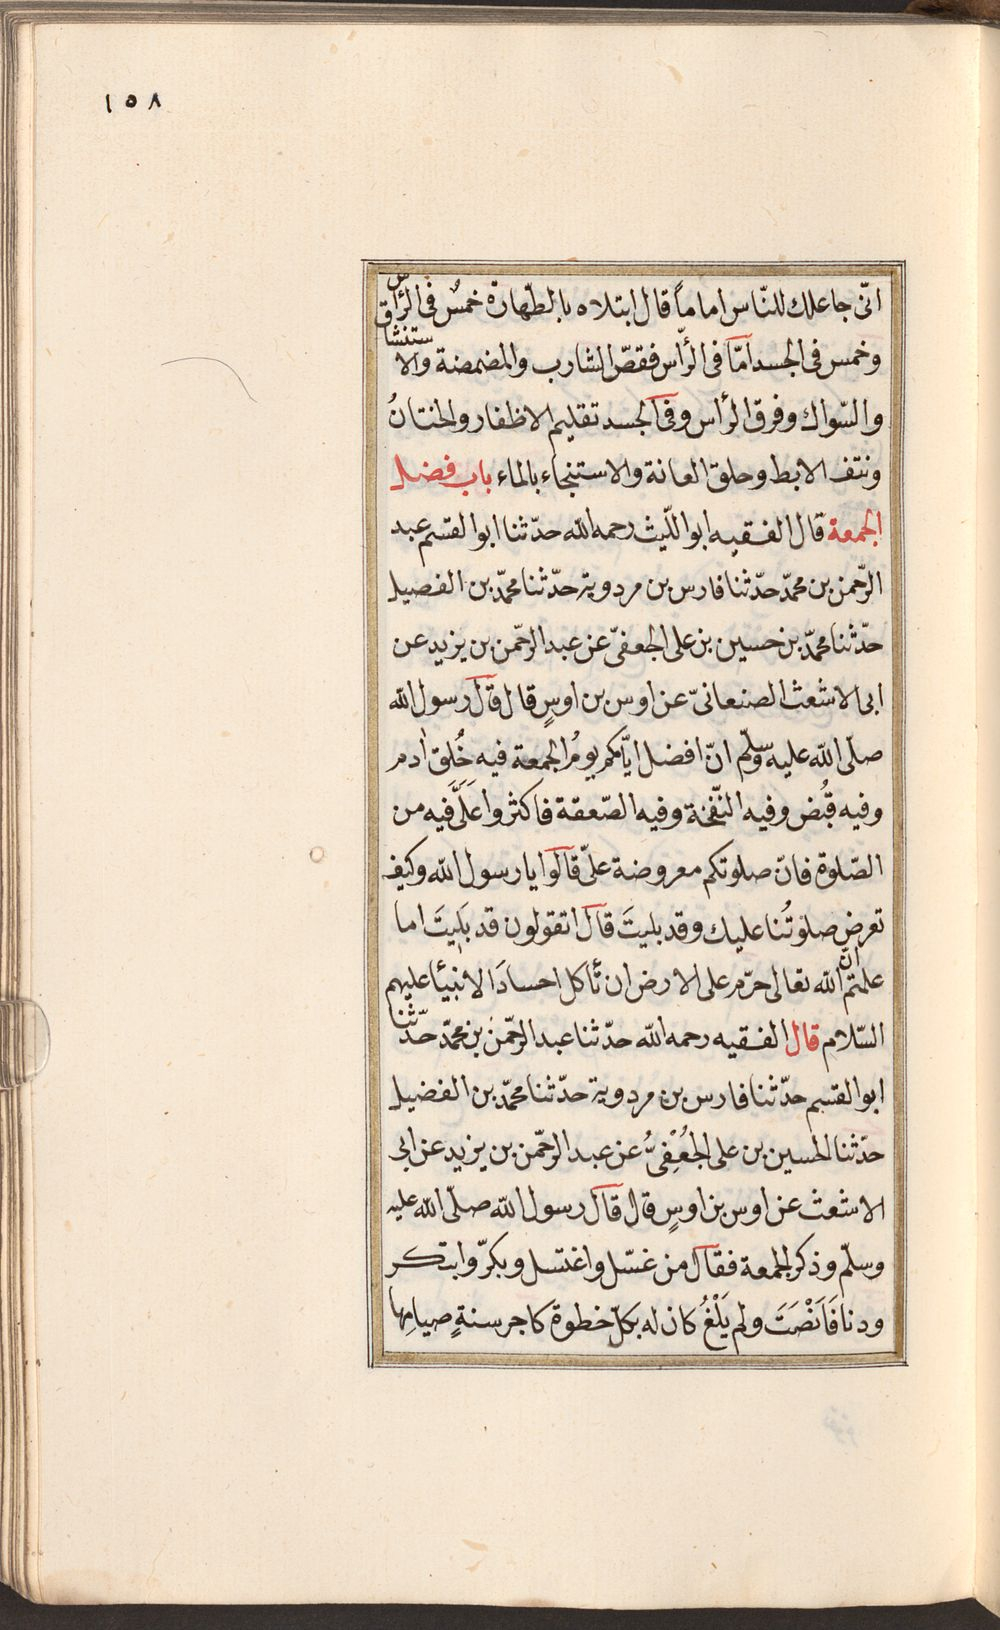 ١٥٨
انّى جاعلك للنّاس اماماً قال ابتلاه بالطّهارة خمسٌ فى الرّأس
وخمس فى الجسد امّا فى الرّأس فقصّ الشارب والمضمضة والاستنشاق
والسّواك وفرق الرأس وفى الجسد تقليم الاظفار والختانُ
ونتف الابط وحلق العانة والاستنجاء بالماء باب فضل
الجمعة قال الفقيه ابو اللّيث رحمه الله حدّثنا ابو القسم عبد
الرّحمن بن محمّد حدّثنا فارس بن مردوية حدّثنا محمّد بن الفضيل
حدّثنا محمّد بن حسين بن على الجعفىّ عن عبد الرحّمن بن يزيد عن
ابى الاشعث الصنعانىّ عن اوس بن اوسٍ قال قال رسول الله
صلّى الله عليه وسلّم انّ افضل ايّامكم يومُ الجمعة فيه خُلق اٰدم
وفيه قُبُض وفيه النّفخة وفيه الصّعقة فاكثروا عَلَىَّ فيه من
الصّلوة فانّ صلوتكم معروضة علىّ قالوا يا رسول الله وكيف
تعرض صلوتُنا عليك وقد بليتَ قال اتقولون قد بَلِيتَ اما
علمتم انّ الله تعالى حرّم على الارض ان تأكل احسادَ الانبئا عليهم
السّلام قال الفقيه رحمه الله حدّثنا عبد الرحّمن بن محمّد حدّثنا
ابو القسم حدّثنا فارس بن مردوية حدّثنا محمّد بن الفضيل
حدّثنا الحسين بن على الجُعْفِىُّ عن عبد الرحّمن بن يزيد عن ابى
الاشعث عن اوس بن اوسٍ قال قال رسول الله صلّى الله عليه
وسلّم وذكر الجمعة فقال من غسّل واغتسل وبكرّ وابتكر
ودنا فَاَنْصَتَ ولم يَلْغُ كان له بكلّ خطوة كاجر سنةٍ صيامِها